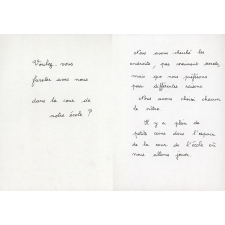 Voulez-vous
fureter avec nous
dans la cour de
notre école ?
Nous avons cherché les
endroits, pas vraiment secrets,
mais que nous préférons
pour différentes raisons.
Nous avons choisi chacun
le nôtre.
Il y a plein de
petits coins dans l'espace
de la cour de l'école où
nous allons jouer.